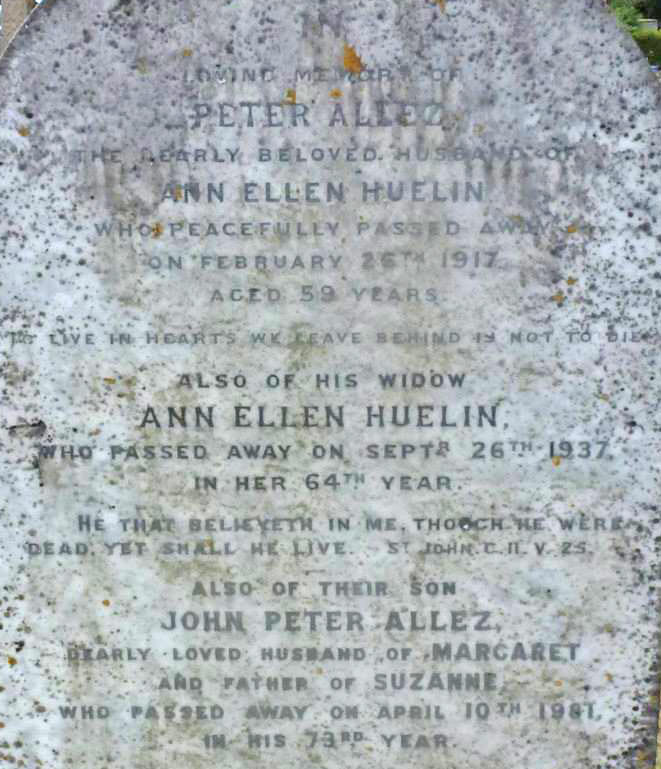 LOVING MEMORY OF
PETER ALLEZ,
THE DEARLY BELOVED HUSBAND OF
ANN ELLEN HUELIN
WHO PEACEFULLY PASSED AWAY
ON FEBRUARY 26TH 1917,
AGED 59 YEARS.
TO LIVE IN HEARTS WE LEAVE BEHIND IS NOT TO DIE
ALSO OF HIS WIDOW
ANN ELLEN HUELIN,
WHO PASSED AWAY ON SEPTR 26TH 1937,
IN HER 64TH YEAR.
HE THAT BELIEVETH IN ME, THOUGH HE WERE
DEAD, YET SHALL HE LIVE. ST JOHN. C. II. V. 25.
ALSO OF THEIR SON
JOHN PETER ALLEZ,
DEARLY LOVED HUSBAND OF MARGARET
AND FATHER OF SUZANNE,
WHO PASSED AWAY ON APRIL 10TH 1981,
IN HIS 73RD YEAR.